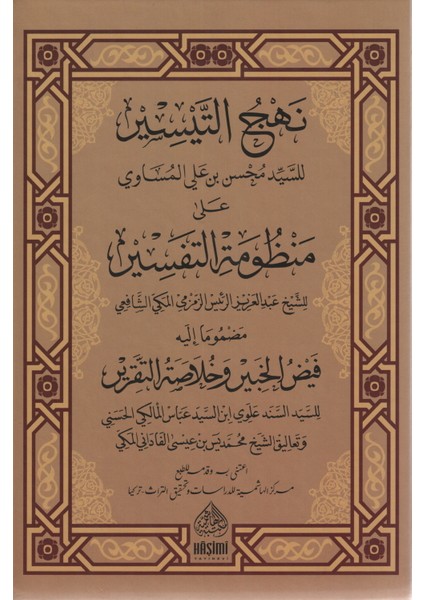 نَهْجُ التَّيْسِيْر
للسَّيِّد مُحْسن بن عَلي المُسَاوي
عَلىٰ
مَنْظُومَةِ التَّفْسِيْر
للشَّيْخ عَبْد العَزِيز الرَّئيس الزمزمي المكي الشَّافِعي
مَضْمُومًا إليه
فَيْضُ الخَبِيْر وَخُلَاصَةُ التَّقْرِيْر
للسيد السند علوي ابن السيد عباس المالكي الحسني
وتعاليق الشيخ محمد يس بن عيسى الفاداني المكي
اعتنى به وقدمه للطبع
مركز الهاشمية للدراسات وتحقيق التراث - تركيا
HÂŞİMİ
YAYINEVİ